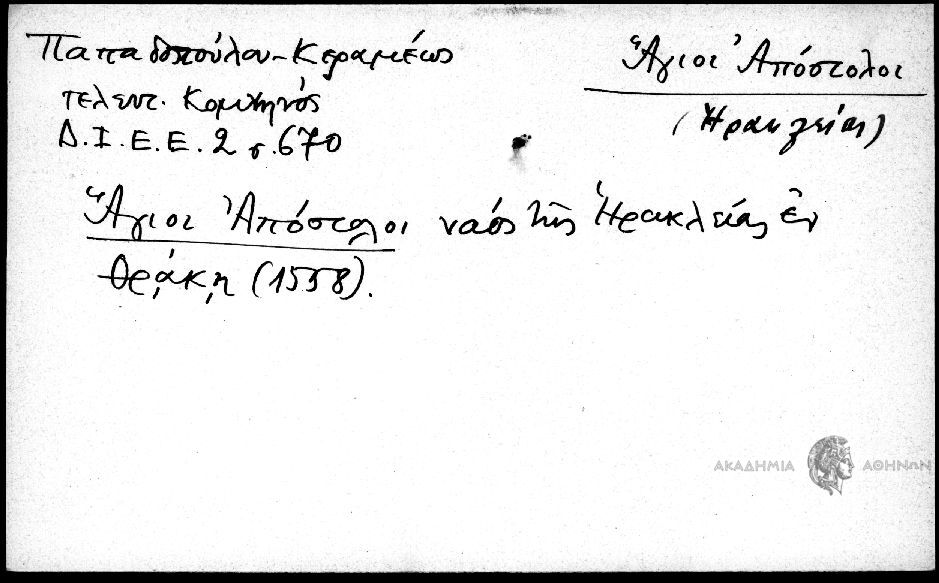 Παπαδοπούλου-Κεραμέως
τελευτ. Κομνηνός
Δ.Ι.Ε.Ε. 2 σ. 670
Ἅγιοι Ἀπόστολοι
(Ἡρακλείας)
Ἅγιοι Ἀπόστολοι ναός τῆς Ἡρακλείας ἐν
Θράκῃ (1558).
ΑΚΑΔΗΜΙΑ ΑΘΗΝΩΝ